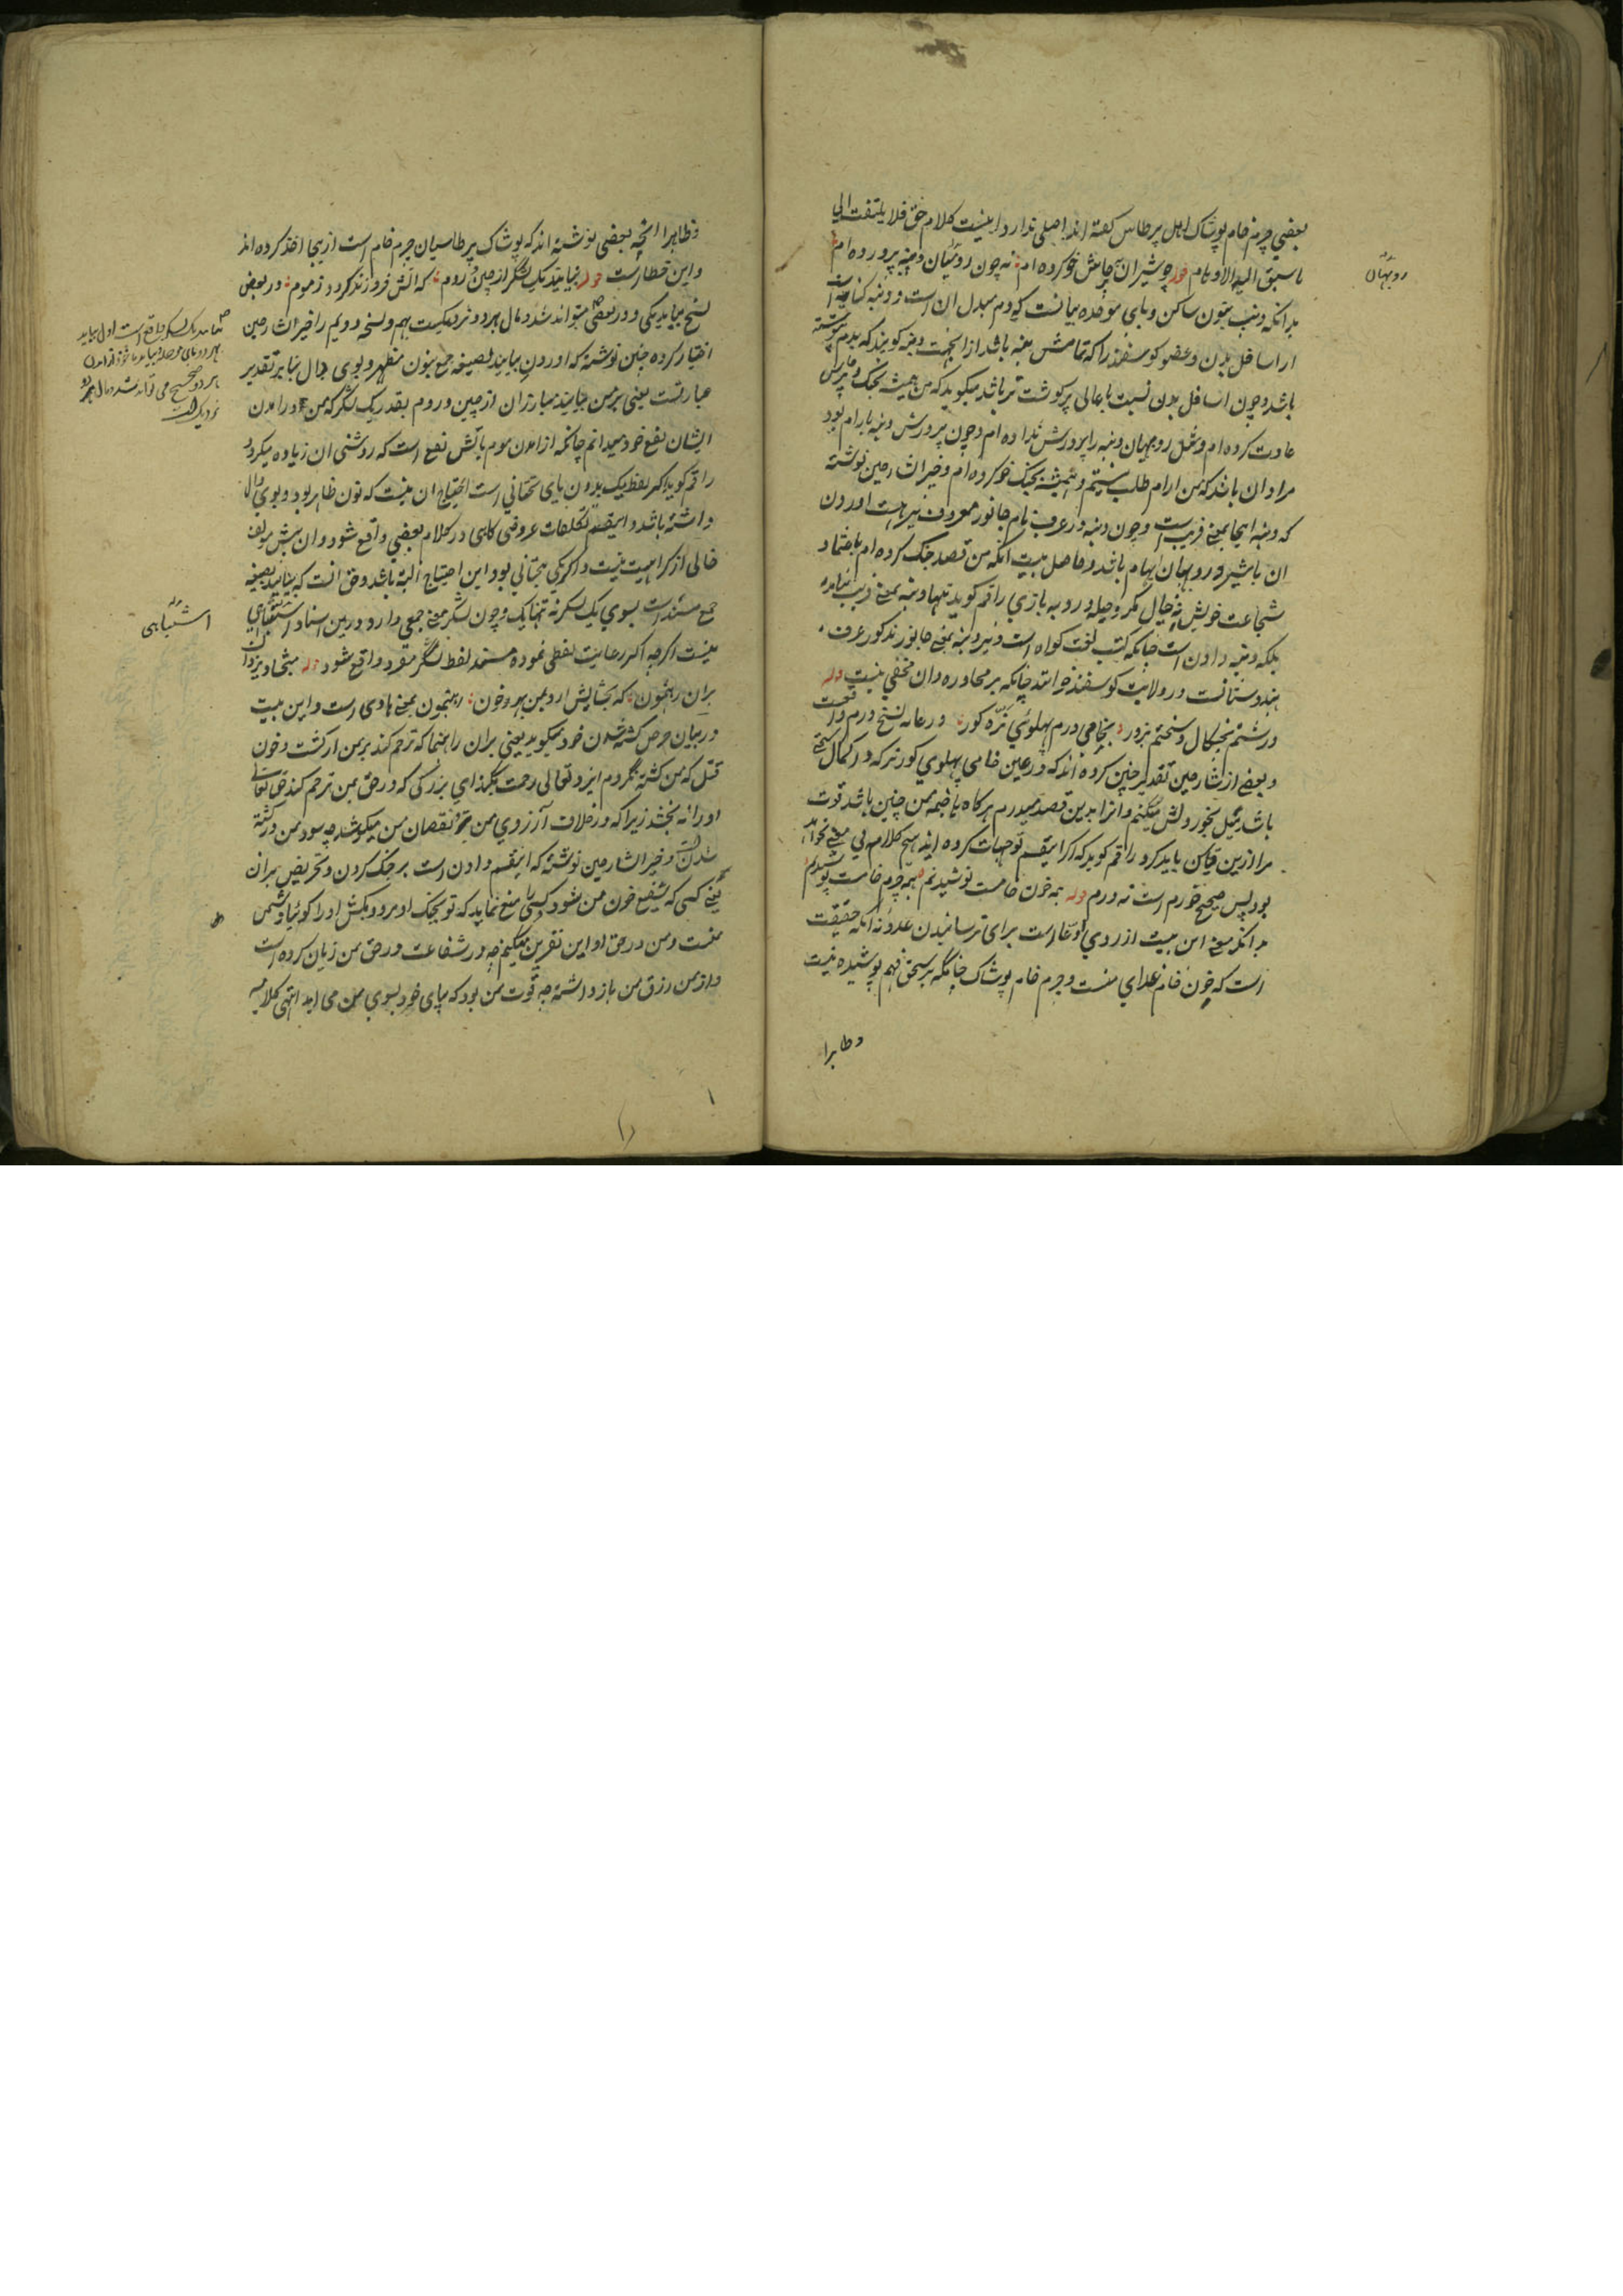 بعضي چرم خام پوشاک اهل پرطاس گفته اند اصلي ندارد اینست کلام حق فلا یلتفت الی
ما سبق الیه الاوهام قوله چو شیران بچالش خو کرده ام نه چون روبهان دنبه پرورده ام
روبهان
بدانکه دنب بنون ساکن و بای موحده بمعنی دم مبدل آن است و دنبه کنایه است
از اسافل بدن و عضو کوسفند را که تمامش دنبه باشد از اینجهت دنبه کویند که بدم پیوسته
باشد و چون اسافل بدن نسبت باعالی پرکوشت تر باشد میکوید که من همیشه بجنگ و پرخاش
عادت کرده ام و مثل روبهان دنبه را پرورش نداده ام و چون پرورش دنبه بارام بود
مراد آن باشد که من ارام طلب نیستم و همیشه بجنک خو کرده ام و خیرالشارحین نوشته
که دنبه اینجا بمعنی فریب است و چون دنبه در عرف نام جانور معروف نیز هست اوردن
ان با شیر و روبهان ایهام باشد و حاصل بیت آنکه من قصد جنک کرده ام باعتماد
شجاعت خویش نه خیال مکر و حیله و روبه بازي راقم کوید تنها دنبه بمعنی فریب نیامده
بلکه دنبه دادن است چنانکه کتب لغت کواه است و نیز دنبه بمعنی جانور مذکور عرف
هندوستانست در ولایت کوسفند خوانند چنانکه بر محاوره دان مخفي نیست قوله
درشتم بچنکال و سختم بزور بخامي درم پهلوي نره کور در عامه نسخ درم واقعست
و بعضی از شارحین تقدیر چنین کرده اند که در عین خامي پهلوي کور نر که در کمال سختی
باشد بچنگ خورد لش میکنم و انرا بدین قصد میدرم هرکاه با خصم من چنین باشد قوت
مرا ازین قیاس باید کرد راقم کوید که اکر اینقسم توجیهات کرده آید هیچ کلام بي معنی نخواهد
بود پس صحیح خورم است نه درم قوله همه خون خامست نوشیدنم همه چرم خامست پوشیدنم
بدانکه معنی این بیت از روي ادعا است برای ترسانیدن عدو نه آنکه حقیقت
است که خون خام غذاي منست و چرم خام پوشاک چنانکه بر سخن فهم پوشیده نیست
و ظاهرا
و ظاهرا انچه بعضي نوشته اند که پوشاک پرطاسیان چرم خام است از یجا اخذ کرده اند
و این خطاست قوله بیایید یک لشکر از چین و روم که آتش فروزند کردد ز موم در بعض
نسخ بیاید یکی و در بعضي میتواند شد و مال هر دو نزدیکست بهم و نسخه دویم را خیرالشارحین
اختیار کرده چنین نوشته که اوردن بیایند بصیغه جمع بنون مظهر و بوی دال بنا بر تقدیر
عبارتست یعنی بر من بیایند مبارزان از چین و روم بقدر یک لشکر که من در امدن
ایشان نفع خود میدانم چنانکه از امدن موم باتش نفع است که روشنی ان زیاده میکردد
راقم کوید اکر لفظ یک بدون یای تحتاني است احتیاج ان نیست که نون ظاهر بود و بوي دال
داشته باشد و اینقسم تکلفات عروضی کاهی در کلام بعضي واقع شود و ان پیش مولف
خالی از کراهیت نیست و اکر یکي بتحتاني بود این احتیاج البته باشد و حق انست که بیایید بصیغه
جمع مسند است بسوي یک لشکر نه تنها یک و چون لشکر معنی جمعی دارد درین اسناد اشتباهي
اشتباهی
نیست اکرچه اکثر رعایت لفظي نموده مسند لفظ لشکر مفرد واقع شود قوله مبخشاد یزدان
بران رهنمون که بخشایش ارد بمن بهر خون رهنمون بمعنی هادی است و این بیت
در بیان حرص کشته شدن خود میکوید یعنی بران راهنما که ترحم کند بر من از کشت و خون
قتل که من کشته نکردم ایزد تعالی رحمت نکند اي بزرکي که در حق من ترحم کند حق تعالی
او را نه بخشد زیرا که در خلاف آرزوي من و نقصان من میکوشد چه سود من در کشته
شدن و خیرالشارحین نوشته که اینقسم دادن است بر جنک کردن و تحریض بران
یعنی کسی که شفیع خون من شود و کسی را منع نماید که تو بجنک او مرو و مکش او را کویا دشمن
منست و من در حق او این نفرین میکنم چه در شفاعت در حق من زیان کرده است
و از من رزق من باز داشته چه قوت من بود که بپای خود بسوي من می امد انتهی کلامه